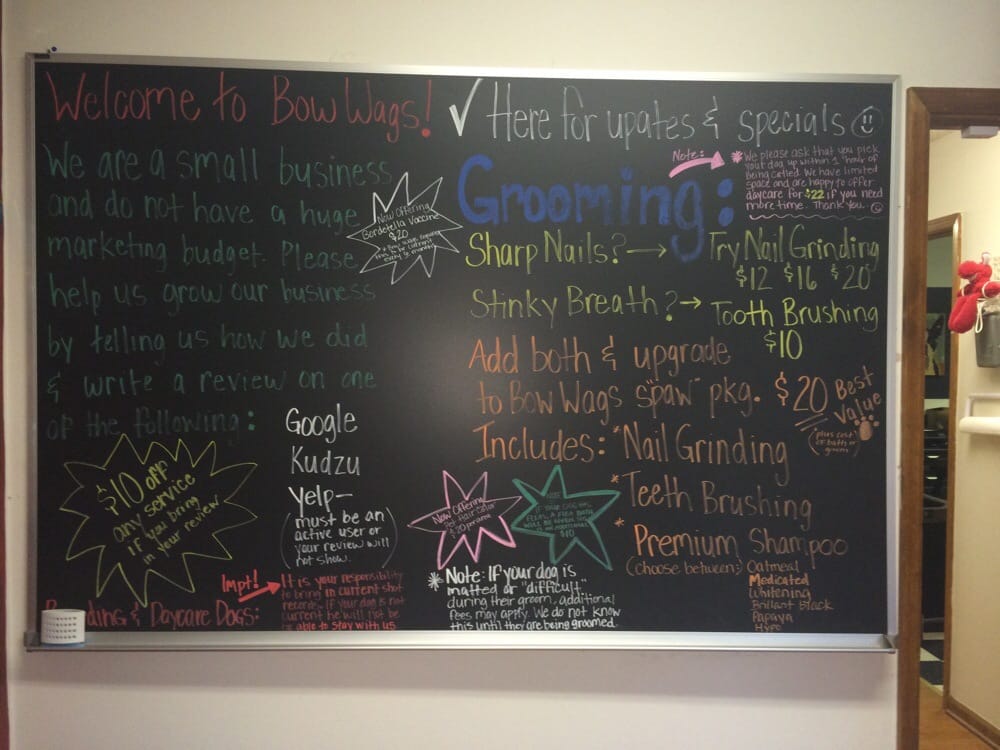 Welcome to Bow Wags!
We are a small business
and do not have a huge
marketing budget. Please
help us grow our business
by telling us how we did
& write a review on one
of the following:
Google
Kudzu
Yelp-
(must be an
active user or
your review will
not show.)
Now Offering
Bordetella Vaccine
$20
$10 off
any service
if you bring
in your
review
Boarding & Daycare Dogs:
Impt!
It is your responsibility
to bring in current shot
records. If your dog is not
current he will not be
able to stay with us
✓ Here for upates & specials
Note:
* We please ask that you pick
your dog up within 1 hour of
being called. We have limited
space and are happy to offer
daycare for $22 if you need
more time. Thank you.
Grooming:
Sharp Nails? → Try Nail Grinding
$12 $16 $20
Stinky Breath? → Tooth Brushing
$10
Add both & upgrade
to Bow Wags "spaw" pkg. $20
Best
Value
(plus cost
of bath or
groom)
Includes: *Nail Grinding
* Teeth Brushing
* Premium Shampoo
(choose between:
Oatmeal
Medicated
Whitening
Brillant Black
Papaya
Hypo
Now Offering
Pet Hair Color
NOTE
IF YOUR DOG HAS
FLEAS, A FLEA BATH
WILL BE GIVEN
$10
* Note: If your dog is
matted or "difficult"
during their groom, additional
fees may apply. We do not know
this until they are being groomed.